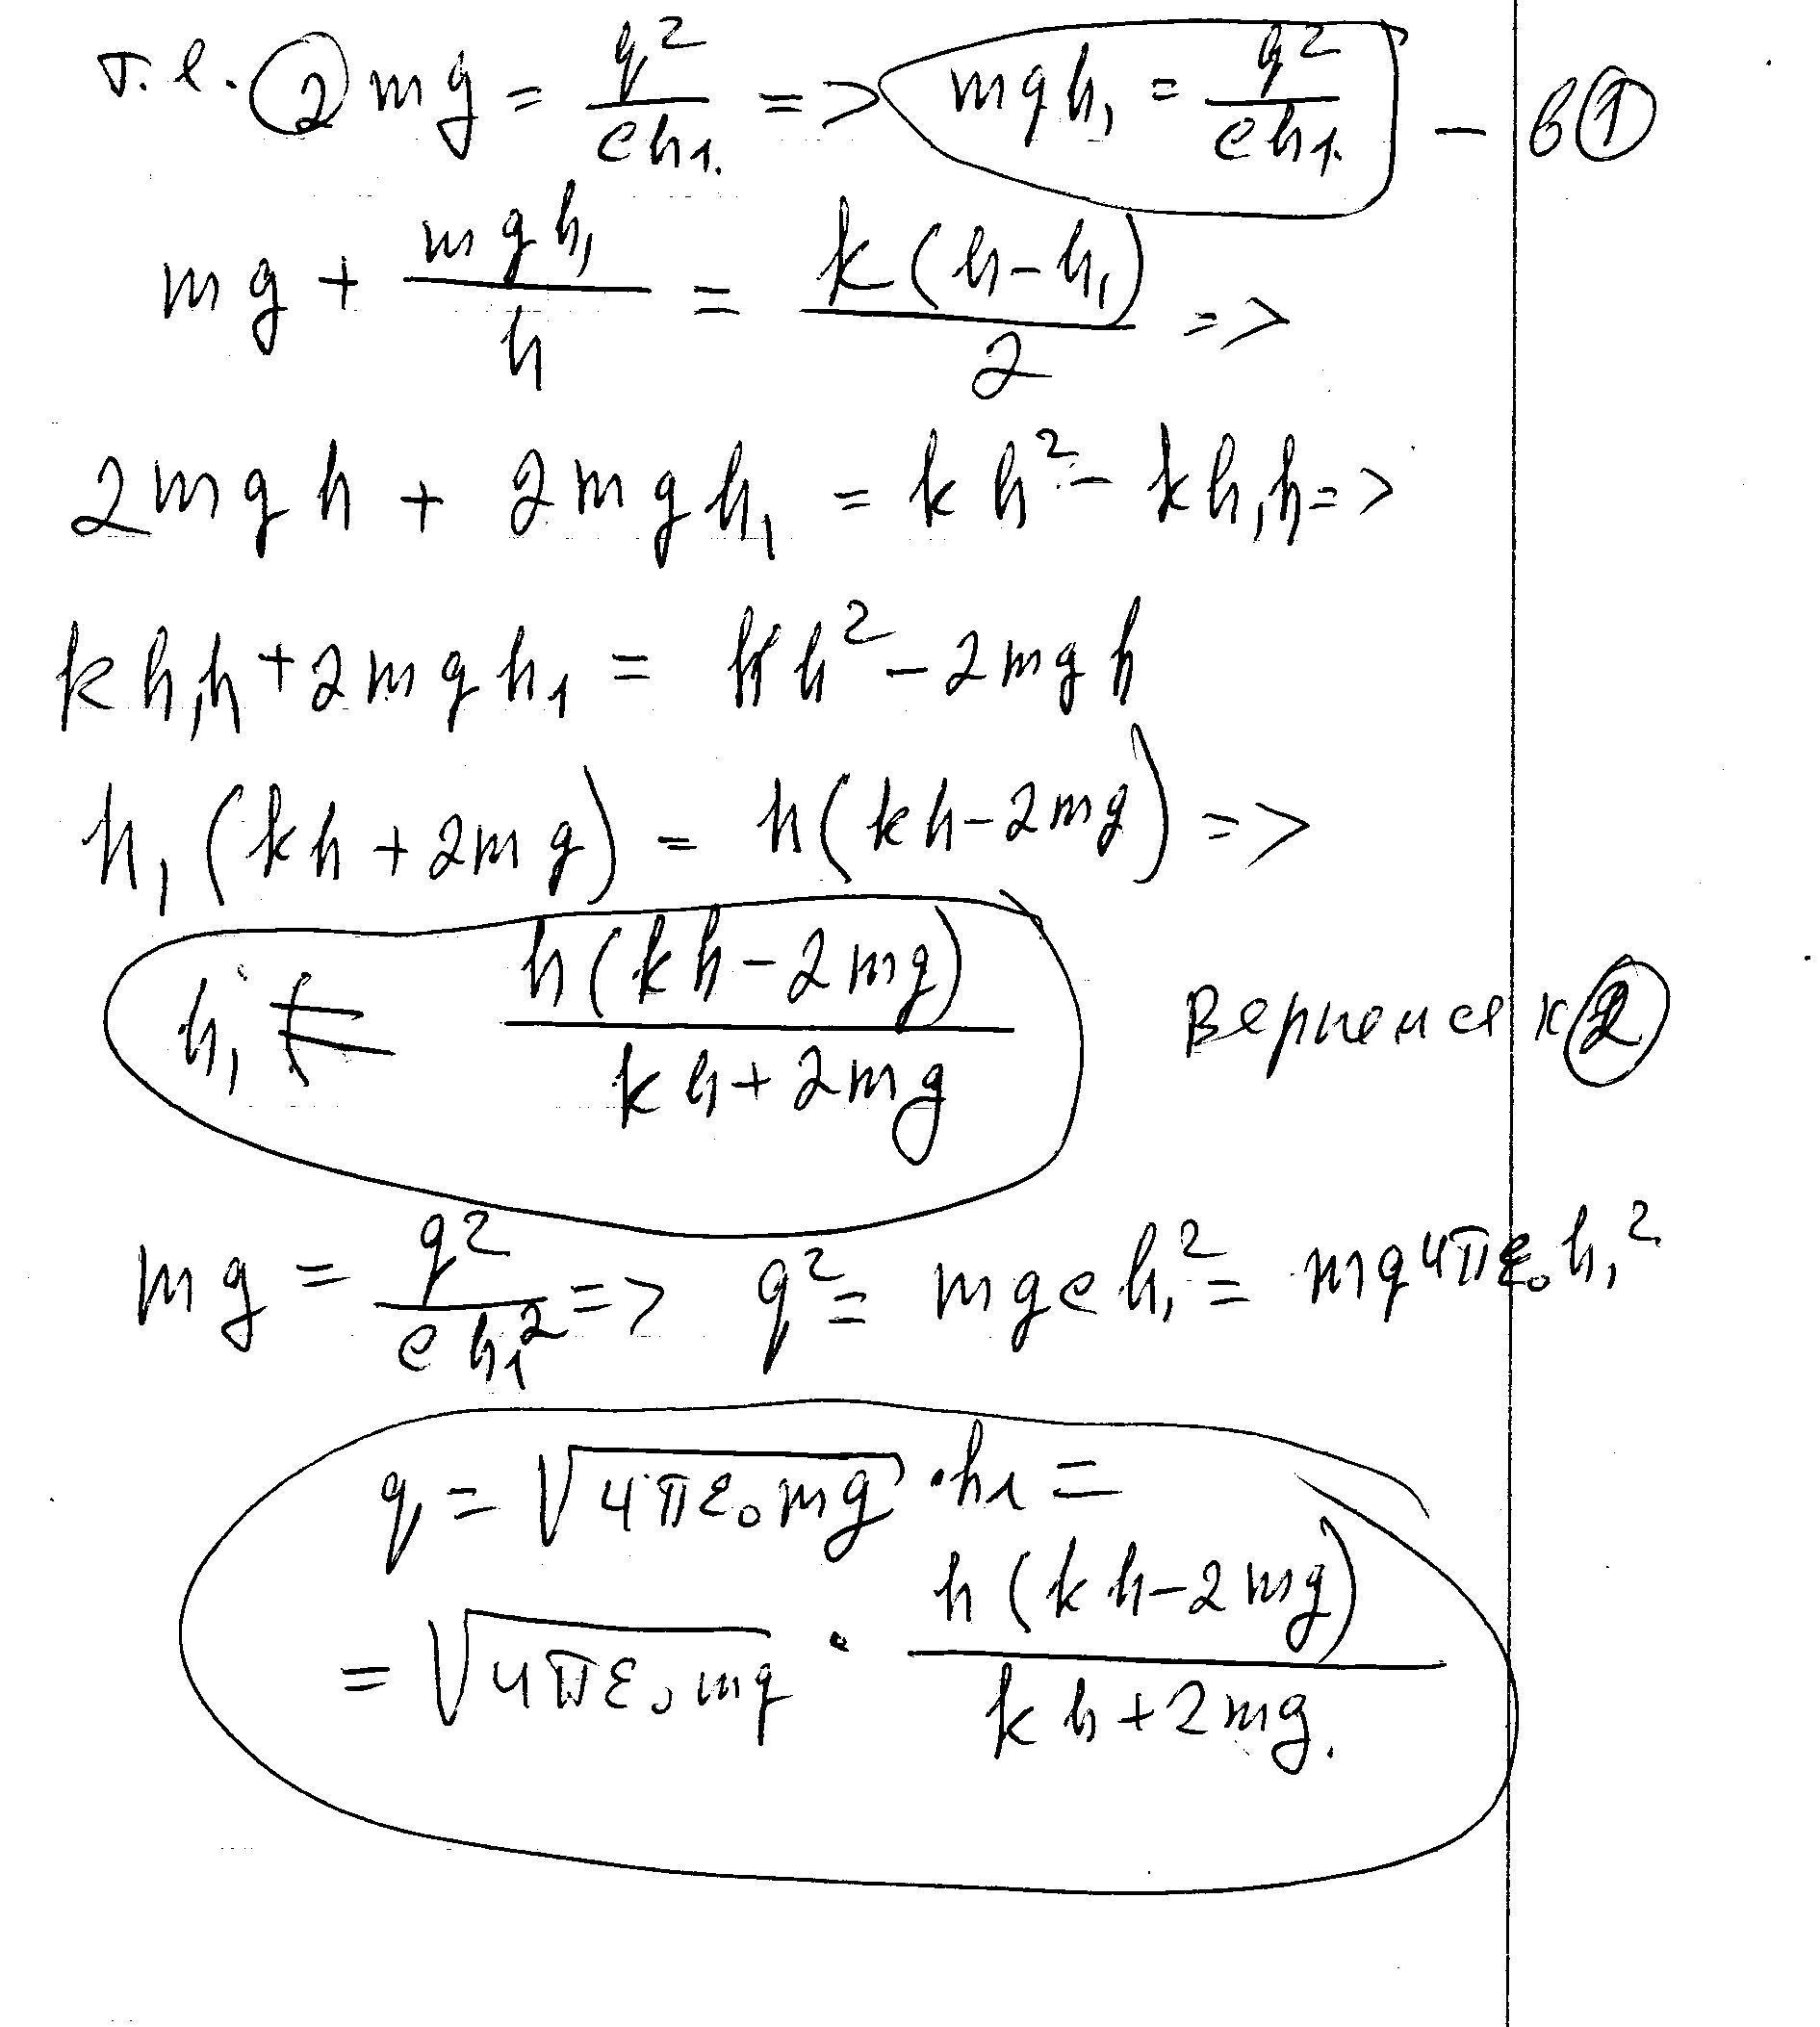 т.е. ② mg = q²/(ch₁) => mgh₁ = q²/(ch₁) – в ①
mg + mgh₁/h = k(h-h₁)/2 =>
2mgh + 2mgh₁ = kh² - kh₁h =>
kh₁h + 2mgh₁ = kh² - 2mgh
h₁(kh + 2mg) = h(kh - 2mg) =>
h₁ = h(kh - 2mg)/(kh + 2mg) Вернемся к ②
mg = q²/(ch₁²) => q² = mgch₁² = mg4πε₀h₁²
q = √(4πε₀mg) · h₁ =
= √(4πε₀mg) · h(kh - 2mg)/(kh + 2mg).